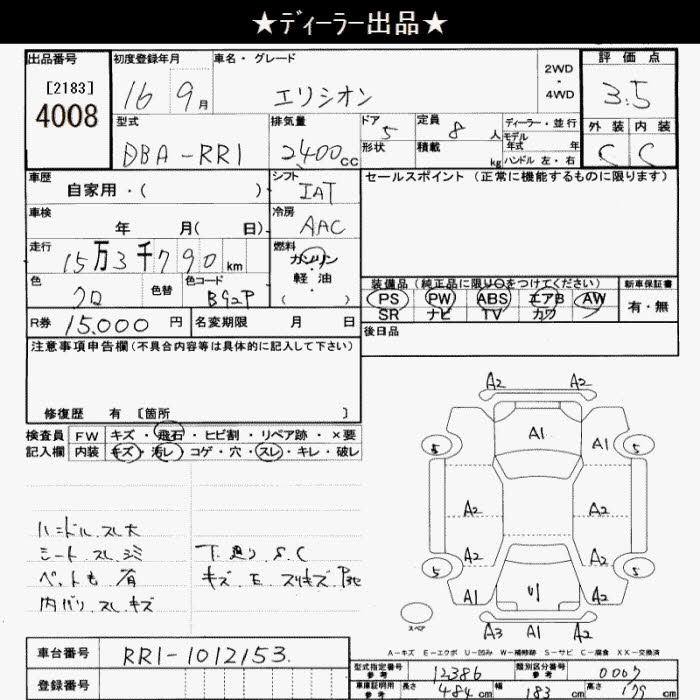 ★ディーラー出品★
出品番号 初度登録年月 車名・グレード 2WD・4WD 評価点
[2183]
4008 16 9月 エリシオン 3.5
型式 排気量 ドア 5 定員 8人 ディーラー・並行 外装 内装
DBA-RR1 2400cc 形状 積載 kg モデル年式 年 ハンドル 左・右 C C
車歴 自家用・( ) シフト IAT セールスポイント(正常に機能するものに限ります)
車検 年 月( 日) 冷房 AAC
走行 15万3千790km 燃料 ガソリン・軽油( )
色 クロ 色替 色コード B92P 装備品(純正品に限り○をつけてください) 新車保証書
PS PW ABS エアB AW 有・無
SR ナビ TV カワ
R券 15,000円 名変期限 月 日 後日品
注意事項申告欄(不具合内容等は具体的に記入して下さい)
修復歴 有 [箇所 ]
検査員記入欄 FW キズ・飛石・ヒビ割・リペア跡・×要
内装 キズ・汚レ・コゲ・穴・スレ・キレ・破レ
A2 A2
A1 A1
5 5
A2 A2
A2 A2
5 5
A1 A2
スペア A3 A1 A2
ハンドル スレ大
シート スレ シミ 下廻り S.C
ペットも 有 キズ E スリキズ
内バリ スレ キズ
A-キズ E-エクボ U-凹み W-補修跡 S-サビ C-腐食 XX-交換済
車台番号 RR1-1012153
登録番号
型式指定番号 参考 12386 類別区分番号 参考 0007
車庫証明用 参考 長さ 484cm 幅 183cm 高さ 179cm